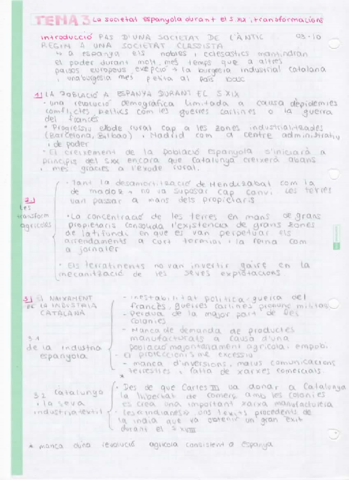 TEMA 3. La societat espanyola durant el s. XIX, transformacions
introducció PAS D'UNA SOCIETAT DE L'ANTIC 03-10
RÈGIM A UNA SOCIETAT CLASSISTA
a Espanya els nobles i eclesiàstics mantindran
el poder durant molt més temps que a altres
països europeus excepció la burgesia industrial catalana
1. LA POBLACIÓ A ESPANYA DURANT EL S.XIX
una revolució demogràfica limitada a causa d'epidèmies
conflictes bèl·lics com les guerres carlines o la guerra
del francès
èxode rural cap a les zones industrialitzades
(Barcelona, Bilbao) i Madrid com a centre administratiu
i de poder
El creixement de la població espanyola s'iniciarà a
principis del s.XX encara que Catalunya creixerà abans
i més gràcies a l'èxode rural.
2.)
Les
transform
agrícoles
Tant la desamortització de Mendizábal com la
de Madoz no va suposar cap canvi. Les terres
van passar a mans dels propietaris
La concentració de les terres en mans de grans
propietaris consolida l'existència de grans zones
de latifundi en què es van perpetuar els
arrendaments a curt termini i la feina com
a jornaler
Els terratinents no van invertir gaire en la
mecanització de les seves explotacions
3) EL NAIXEMENT
DE LA INDÚSTRIA
CATALANA
3.1
de la indústria
espanyola
Inestabilitat política: guerra del
francès, guerres carlines,
Pèrdua de la major part de les
colònies
Manca de demanda de productes
manufacturats a causa d'una
població majoritàriament agrícola
El proteccionisme excessiu
manca d'inversions, males comunicacions
terrestres i falta de xarxes comercials
3.2 Catalunya
i la seva
indústria tèxtil
Des de que Carles III va donar a Catalunya
la llibertat de comerç amb les colònies
es crea una important xarxa manufacturera
procedents de
la índia que va obtenir un gran èxit
durant el s XVIII
* manca una revolució agrícola consistent a Espanya